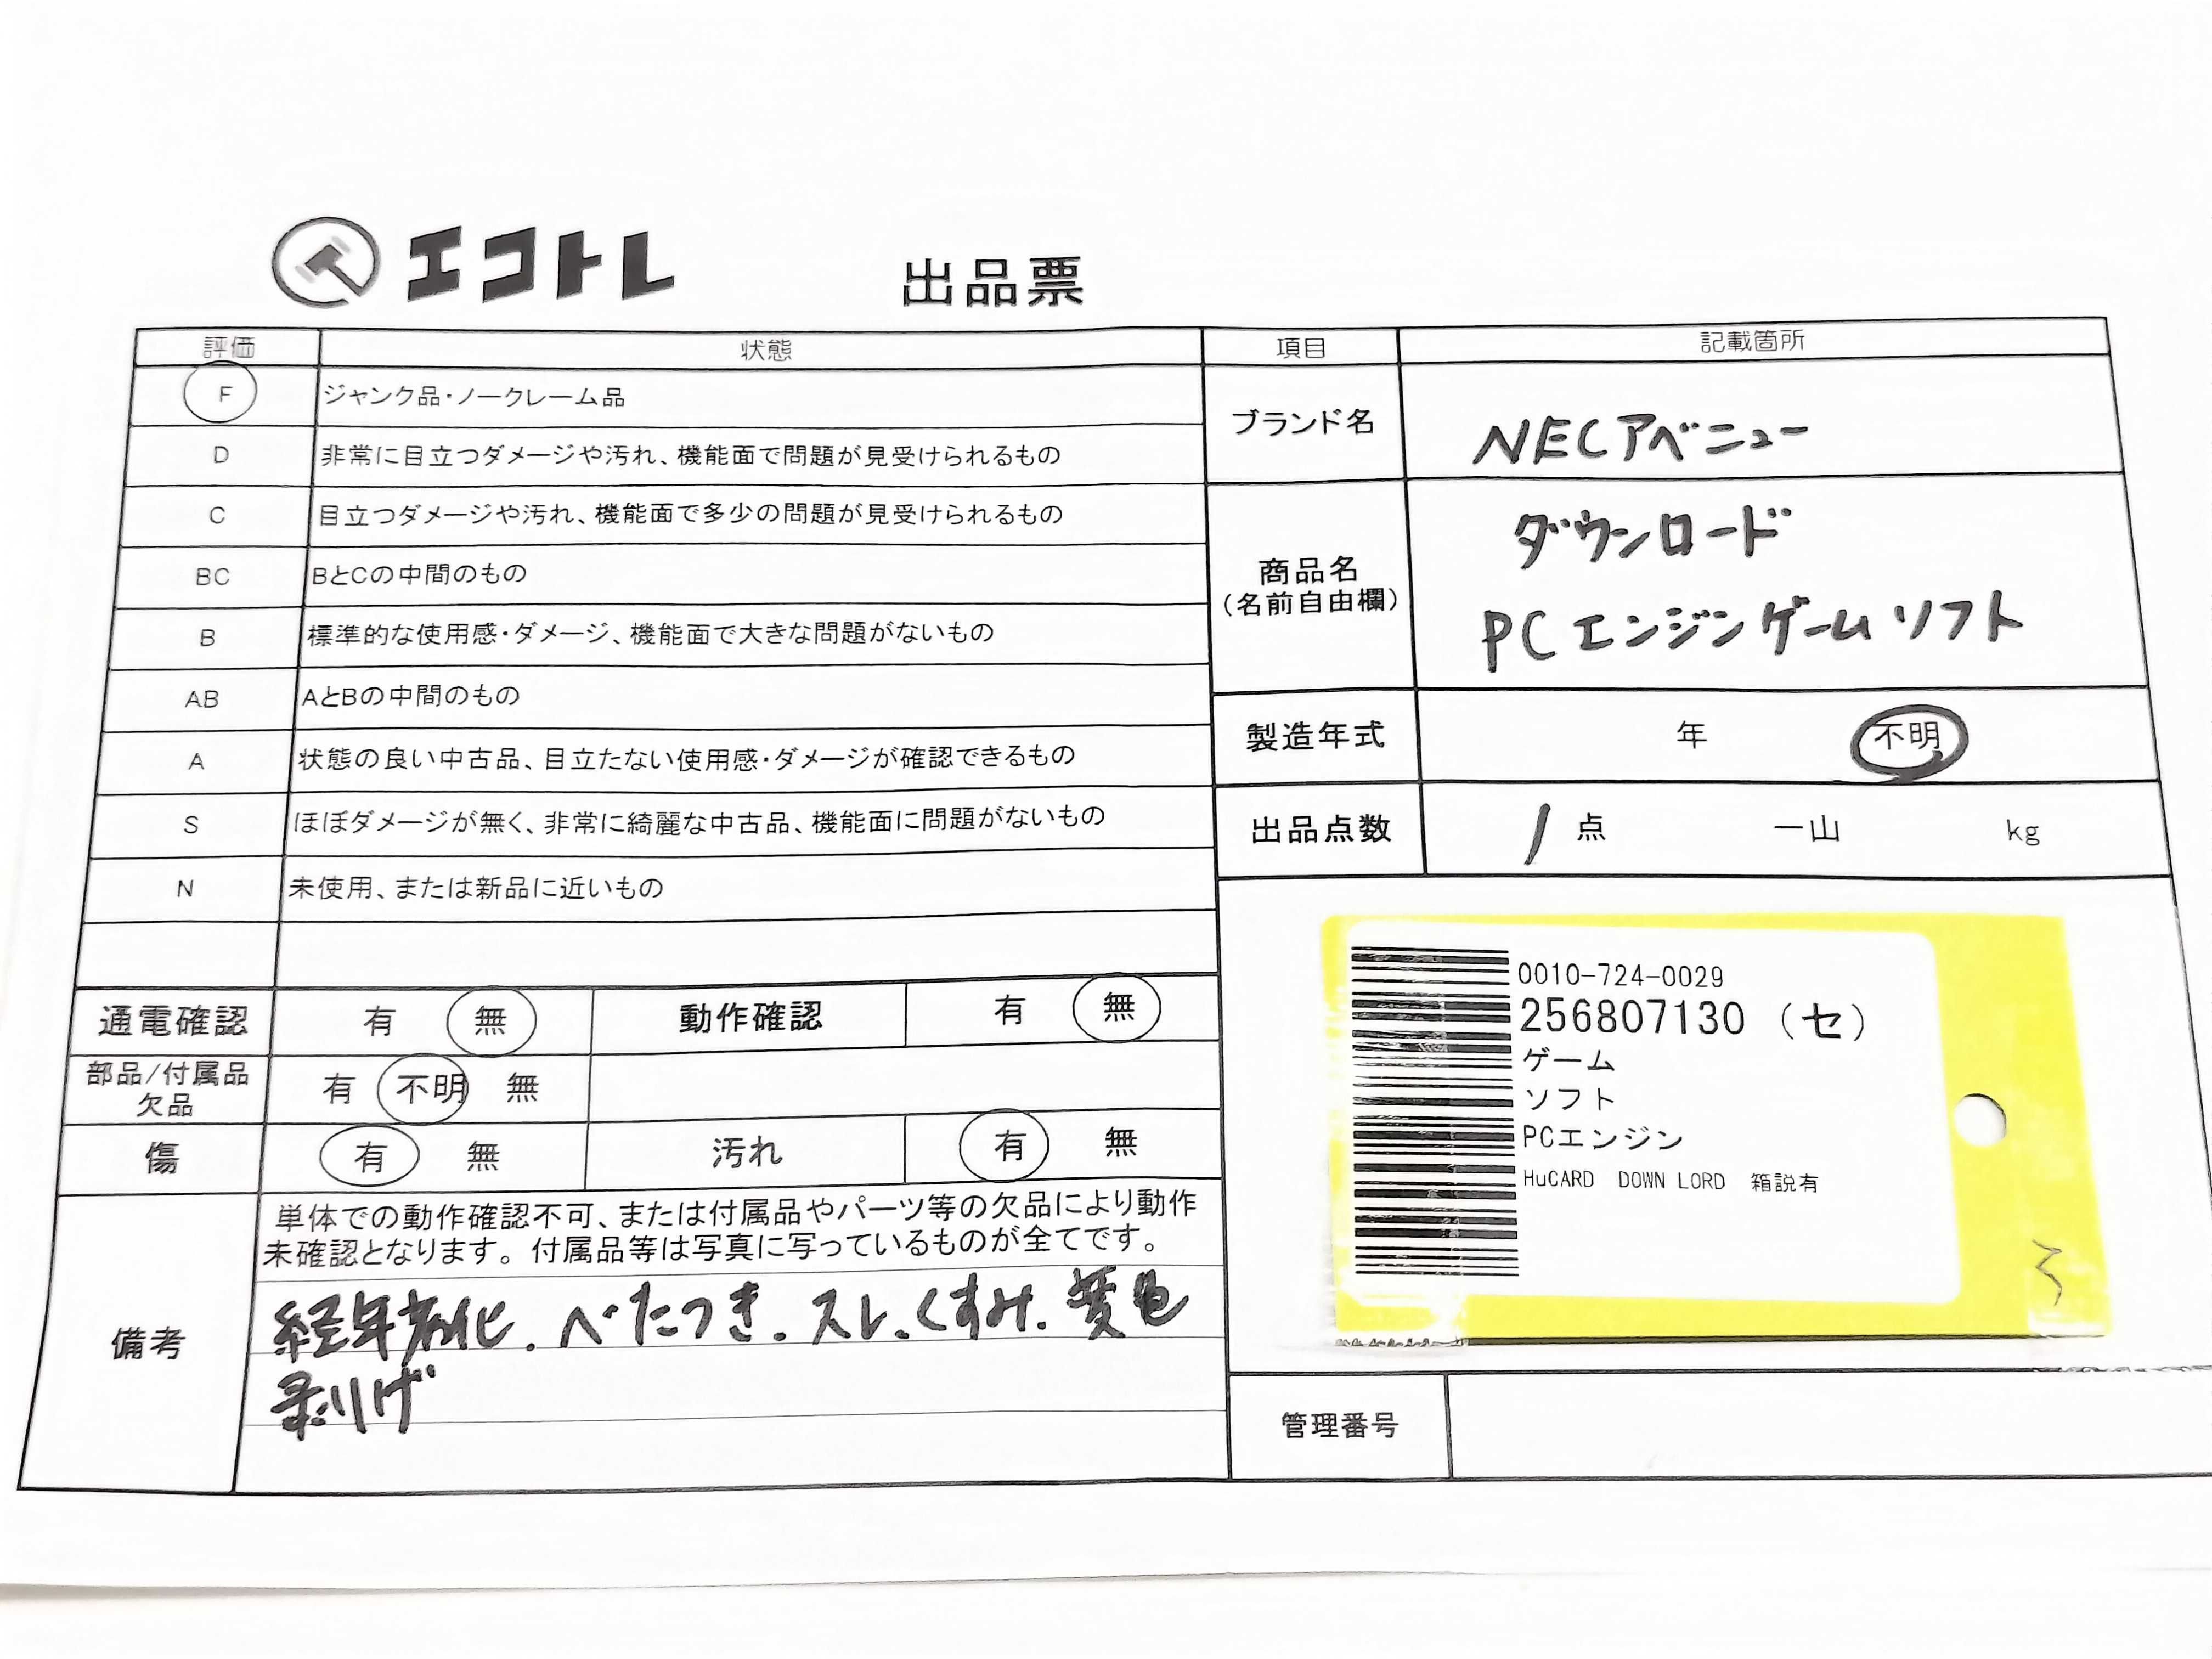 エコトレ 出品票
評価 状態 項目 記載箇所
F ジャンク品・ノークレーム品
D 非常に目立つダメージや汚れ、機能面で問題が見受けられるもの
C 目立つダメージや汚れ、機能面で多少の問題が見受けられるもの
BC BとCの中間のもの
B 標準的な使用感・ダメージ、機能面で大きな問題がないもの
AB AとBの中間のもの
A 状態の良い中古品、目立たない使用感・ダメージが確認できるもの
S ほぼダメージが無く、非常に綺麗な中古品、機能面に問題がないもの
N 未使用、または新品に近いもの
通電確認 有 無 動作確認 有 無
部品/付属品
欠品
有 不明 無
傷 有 無 汚れ 有 無
備考
単体での動作確認不可、または付属品やパーツ等の欠品により動作
未確認となります。付属品等は写真に写っているものが全てです。
経年劣化.べたつき.スレ.くすみ.変色
剥げ
ブランド名 NECアベニュー
商品名
(名前自由欄)
ダウンロード
PCエンジンゲームソフト
製造年式 年 不明
出品点数 1 点 一山 kg
0010-724-0029
256807130 (セ)
ゲーム
ソフト
PCエンジン
HuCARD DOWN LORD 箱説有
管理番号